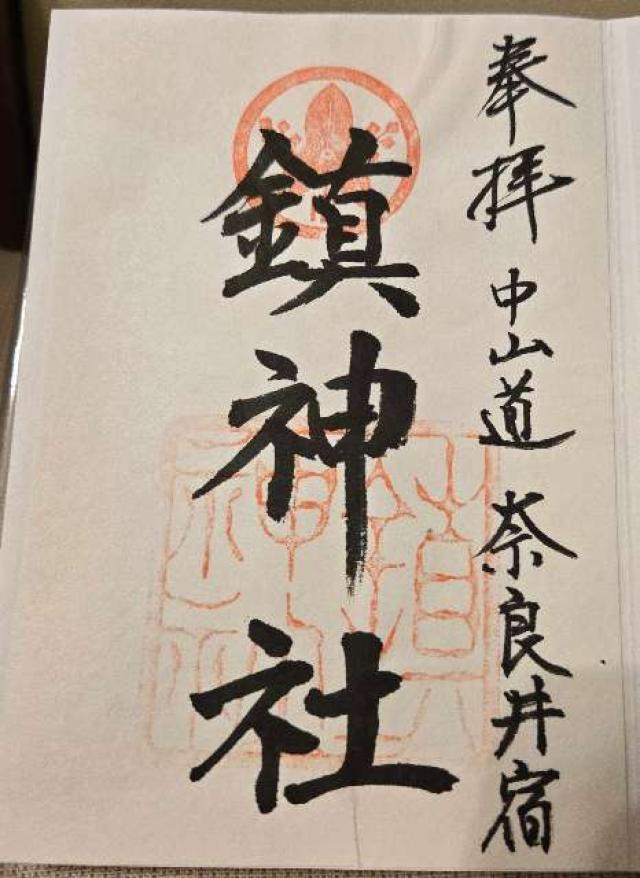 奉拝 中山道 奈良井宿
鎮神社